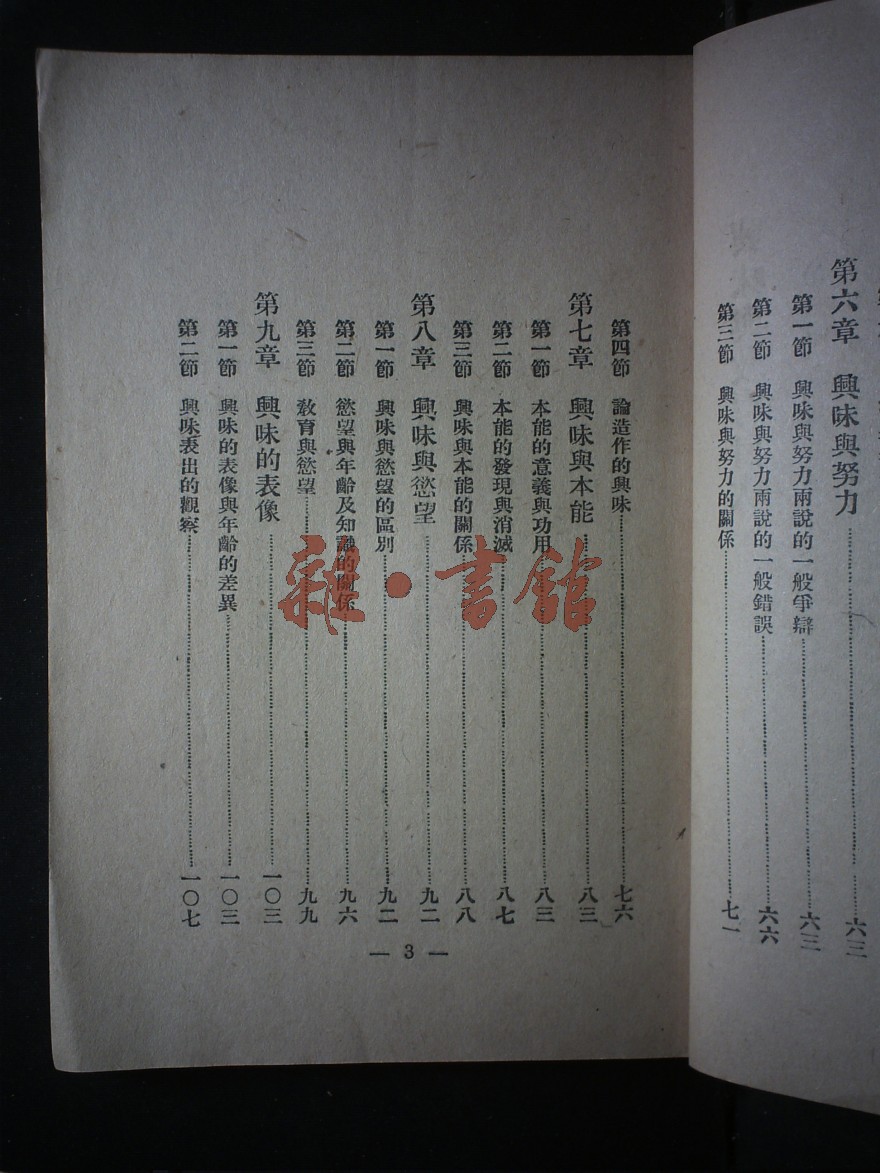 第六章　興味與努力……六三
第一節　興味與努力兩說的一般爭辯……六三
第二節　興味與努力兩說的一般錯誤……六六
第三節　興味與努力的關係……七一
第四節　論造作的興味……七六
第七章　興味與本能……八三
第一節　本能的意義與功用……八三
第二節　本能的發現與消滅……八七
第三節　興味與本能的關係……八八
第八章　興味與慾望……九二
第一節　興味與慾望的區別……九二
第二節　慾望與年齡及知識的關係……九六
第三節　教育與慾望……九九
第九章　興味的表像……一〇三
第一節　興味的表像與年齡的差異……一〇三
第二節　興味表出的觀察……一〇七
— 3 —
雜·書館